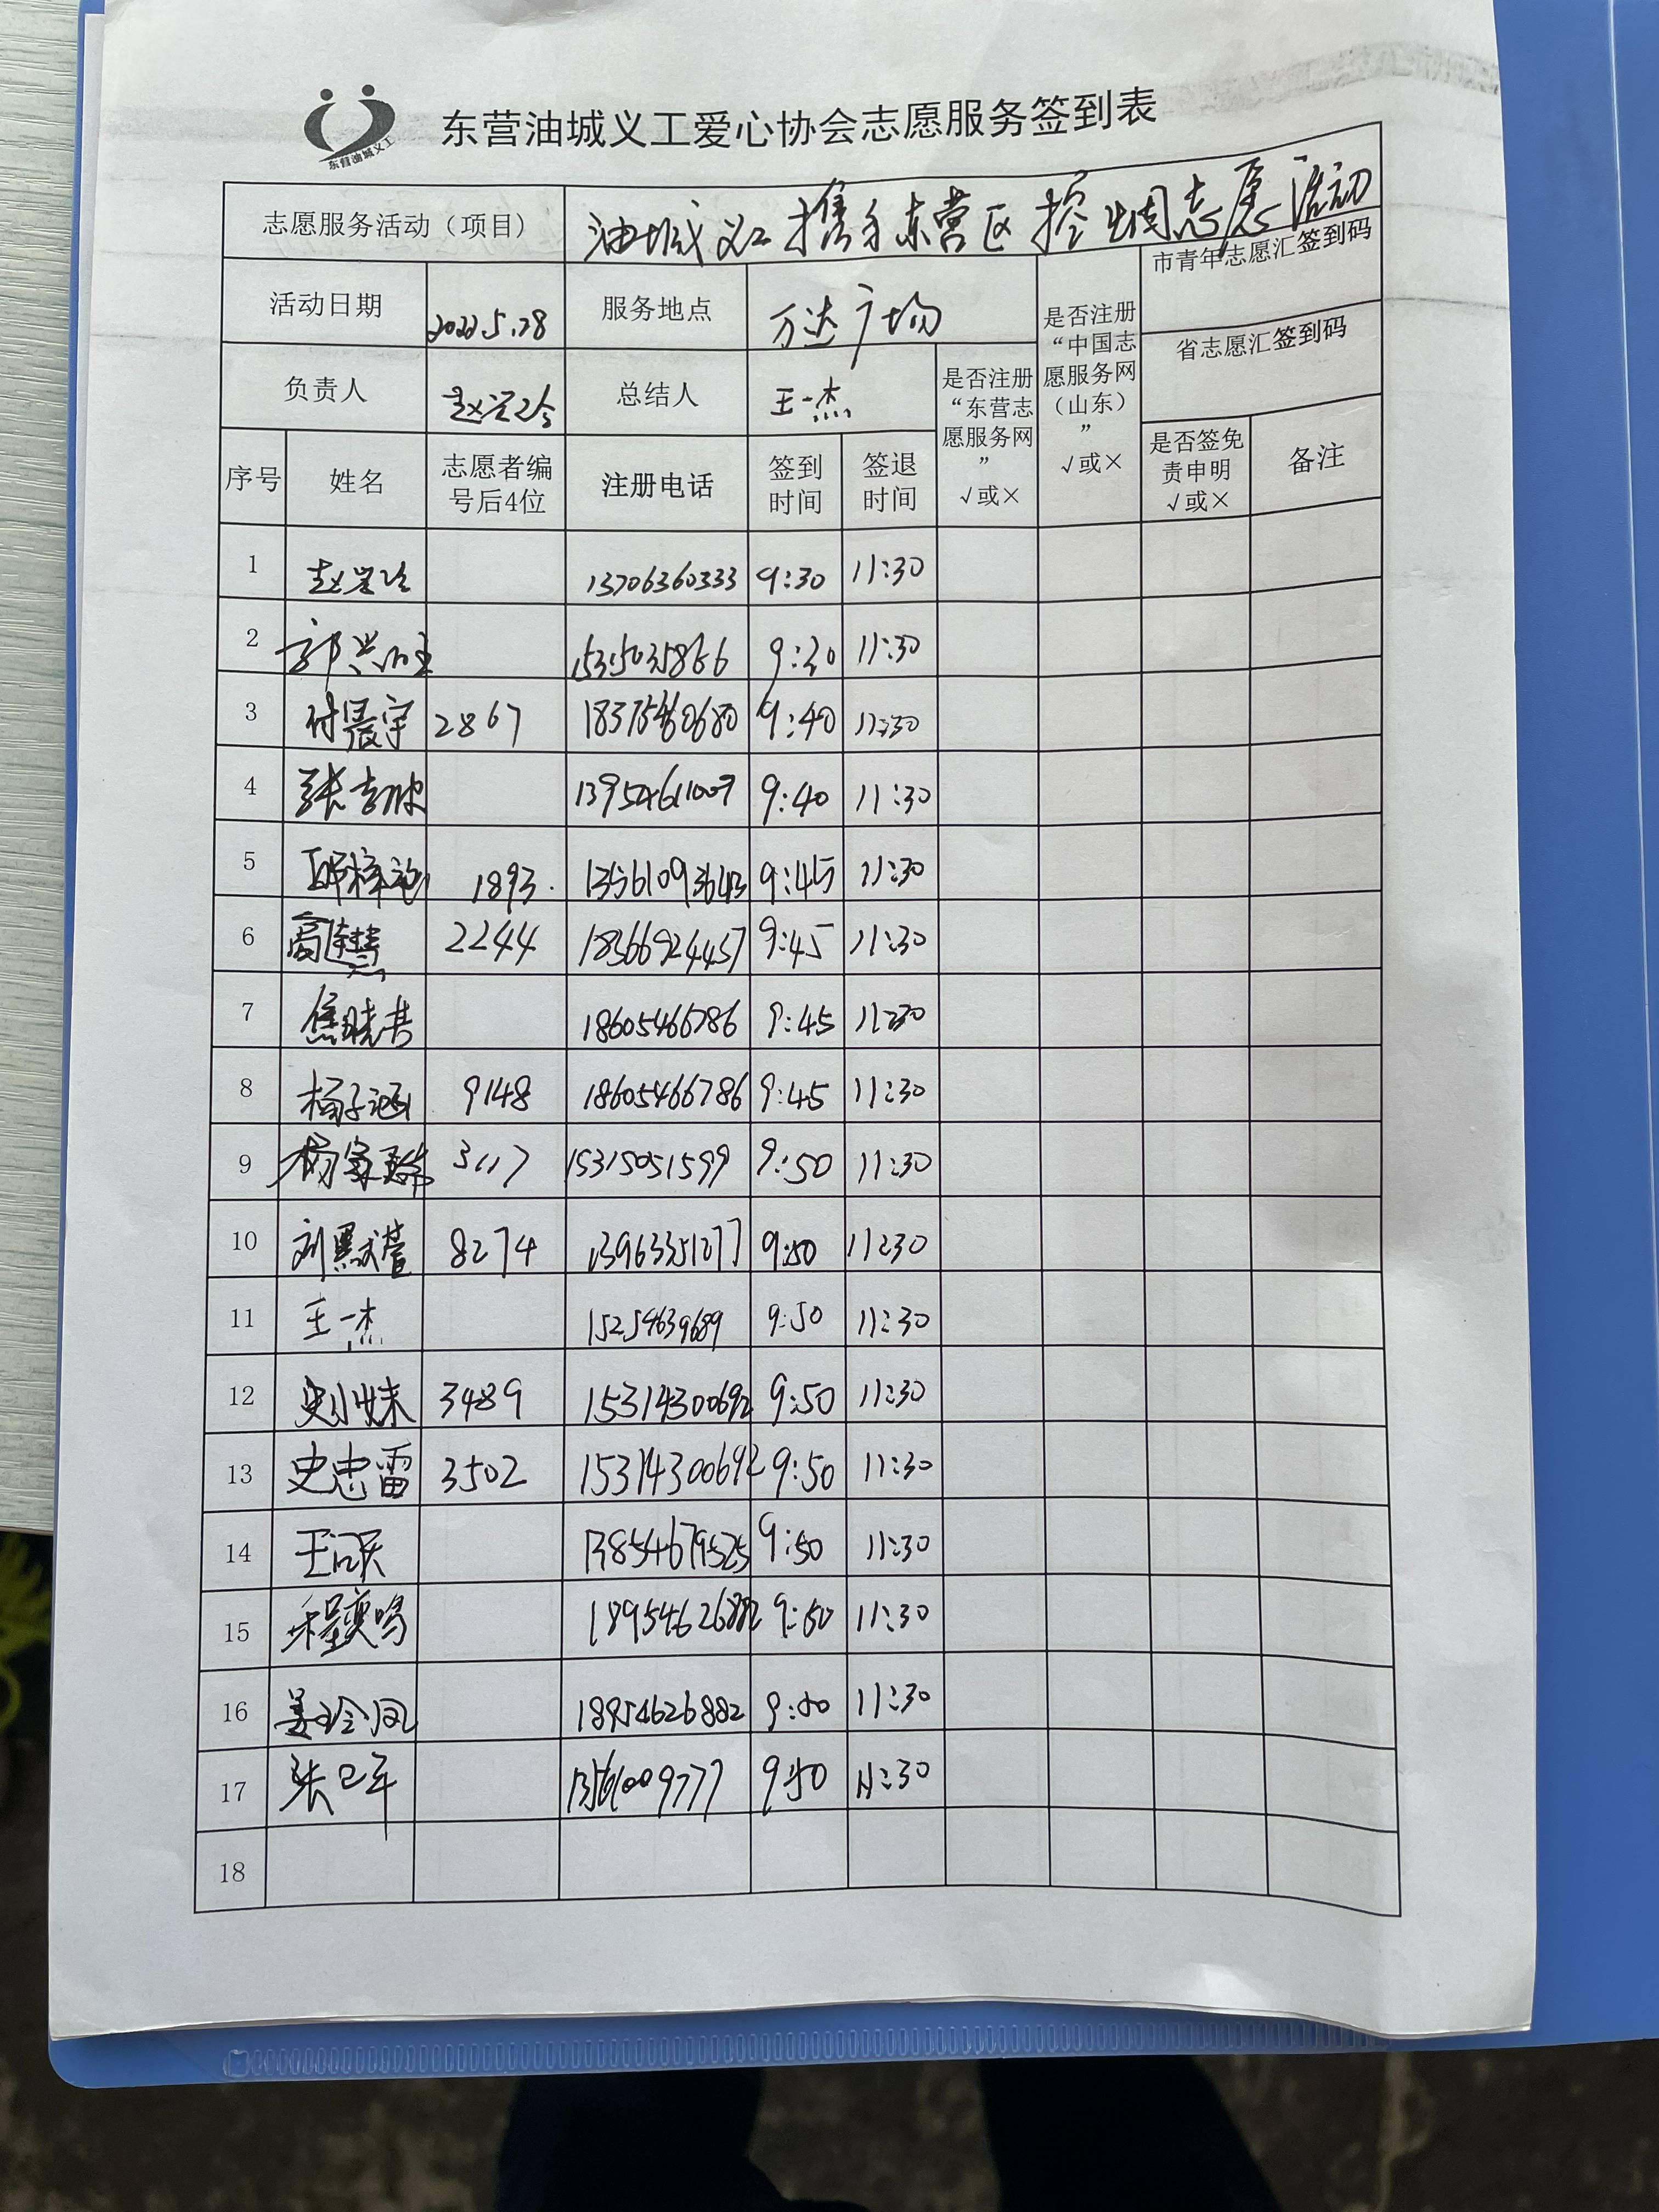 东营油城义工
东营油城义工爱心协会志愿服务签到表
志愿服务活动（项目） 油城义工携手东营区控烟志愿活动
活动日期 2022.5.28 服务地点 万达广场
是否注册“中国志愿服务网（山东）” √或×
市青年志愿汇签到码
省志愿汇签到码
负责人 总结人 王一杰
是否注册“东营志愿服务网” √或×
序号 姓名 志愿者编号后4位 注册电话 签到时间 签退时间 是否签免责申明 √或× 备注
1 13706360333 9:30 11:30
2 15315035866 9:30 11:30
3 付晨宇 2867 9:40 11:30
4 13954611009 9:40 11:30
5 1893 9:45 11:30
6 高连慧 2244 18366924457 9:45 11:30
7 18605466786 9:45 11:30
8 杨子涵 9148 18605466786 9:45 11:30
9 3117 15315051599 9:50 11:30
10 8274 13963351277 9:50 11:30
11 王一杰 15254639689 9:50 11:30
12 史小妹 3489 15314300692 9:50 11:30
13 史忠雷 3502 15314300692 9:50 11:30
14 13854679525 9:50 11:30
15 程奕鸣 18954626882 9:50 11:30
16 姜玲凤 18954626882 9:50 11:30
17 9:50 11:30
18